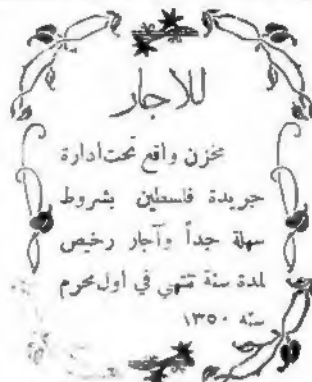 للاجار
مخزن واقع تحت ادارة
جريدة فلسطين بشروط
سهلة جداً وآجار رخيص
لمدة سنة تنتهي في اول محرم
سنه ١٣٥٠